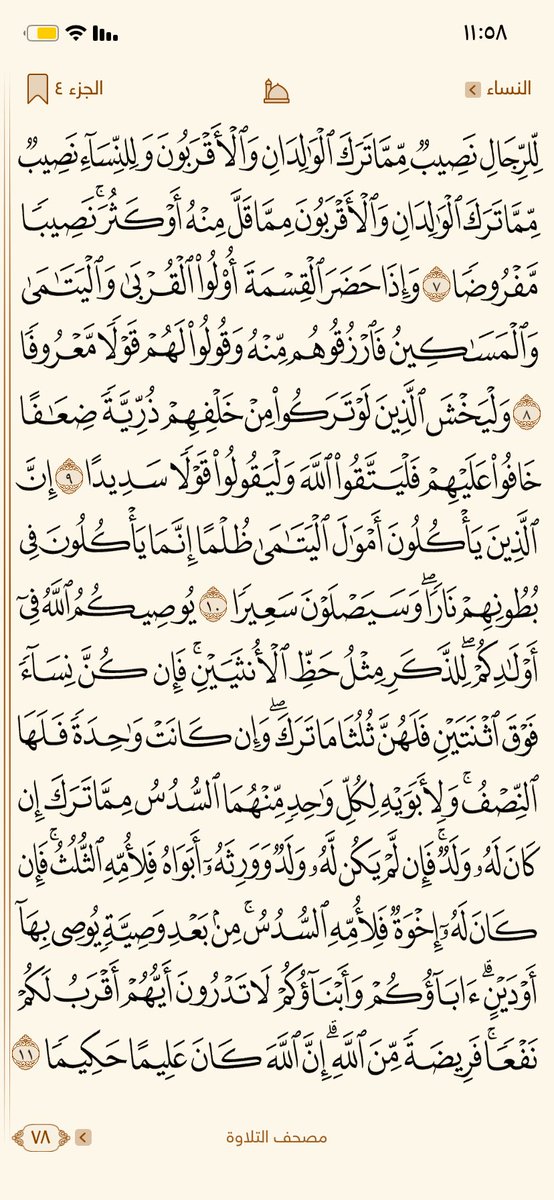 ١١:٥٨
النساء
الجزء ٤
لِّلرِّجَالِ نَصِيبٌ مِّمَّا تَرَكَ ٱلْوَٰلِدَانِ وَٱلْأَقْرَبُونَ وَلِلنِّسَآءِ نَصِيبٌ
مِّمَّا تَرَكَ ٱلْوَٰلِدَانِ وَٱلْأَقْرَبُونَ مِمَّا قَلَّ مِنْهُ أَوْ كَثُرَ ۚ نَصِيبًا
مَّفْرُوضًا ٧ وَإِذَا حَضَرَ ٱلْقِسْمَةَ أُو۟لُوا۟ ٱلْقُرْبَىٰ وَٱلْيَتَٰمَىٰ
وَٱلْمَسَٰكِينُ فَٱرْزُقُوهُم مِّنْهُ وَقُولُوا۟ لَهُمْ قَوْلًا مَّعْرُوفًا
٨ وَلْيَخْشَ ٱلَّذِينَ لَوْ تَرَكُوا۟ مِنْ خَلْفِهِمْ ذُرِّيَّةً ضِعَٰفًا
خَافُوا۟ عَلَيْهِمْ فَلْيَتَّقُوا۟ ٱللَّهَ وَلْيَقُولُوا۟ قَوْلًا سَدِيدًا ٩ إِنَّ
ٱلَّذِينَ يَأْكُلُونَ أَمْوَٰلَ ٱلْيَتَٰمَىٰ ظُلْمًا إِنَّمَا يَأْكُلُونَ فِى
بُطُونِهِمْ نَارًا ۖ وَسَيَصْلَوْنَ سَعِيرًا ١٠ يُوصِيكُمُ ٱللَّهُ فِىٓ
أَوْلَٰدِكُمْ ۖ لِلذَّكَرِ مِثْلُ حَظِّ ٱلْأُنثَيَيْنِ ۚ فَإِن كُنَّ نِسَآءً
فَوْقَ ٱثْنَتَيْنِ فَلَهُنَّ ثُلُثَا مَا تَرَكَ ۖ وَإِن كَانَتْ وَٰحِدَةً فَلَهَا
ٱلنِّصْفُ ۚ وَلِأَبَوَيْهِ لِكُلِّ وَٰحِدٍ مِّنْهُمَا ٱلسُّدُسُ مِمَّا تَرَكَ إِن
كَانَ لَهُۥ وَلَدٌ ۚ فَإِن لَّمْ يَكُن لَّهُۥ وَلَدٌ وَوَرِثَهُۥٓ أَبَوَاهُ فَلِأُمِّهِ ٱلثُّلُثُ ۚ فَإِن
كَانَ لَهُۥٓ إِخْوَةٌ فَلِأُمِّهِ ٱلسُّدُسُ ۚ مِنۢ بَعْدِ وَصِيَّةٍ يُوصِى بِهَآ
أَوْ دَيْنٍ ۗ ءَابَآؤُكُمْ وَأَبْنَآؤُكُمْ لَا تَدْرُونَ أَيُّهُمْ أَقْرَبُ لَكُمْ
نَفْعًا ۚ فَرِيضَةً مِّنَ ٱللَّهِ ۗ إِنَّ ٱللَّهَ كَانَ عَلِيمًا حَكِيمًا ١١
مصحف التلاوة
٧٨